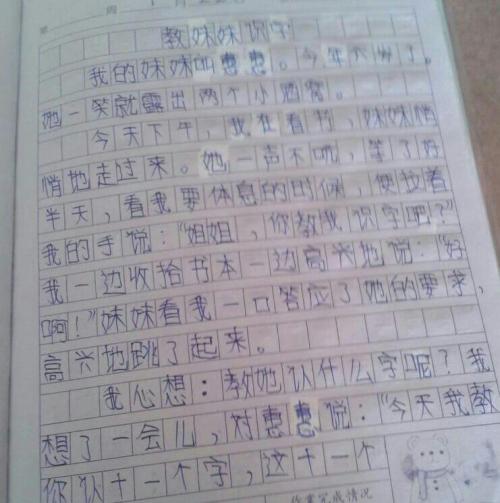 教妹妹识字
我的妹妹叫惠惠。今年六岁了。
她一笑就露出两个小酒窝。
今天下午,我在看书,妹妹悄
悄地走过来。她一声不吭,等了好
半天,看我要休息的时候,便拉着
我的手说:“姐姐,你教我识字吧?”
我一边收拾书本一边高兴地说:“好
啊!”妹妹看我一口答应了她的要求,
高兴地跳了起来。
我心想:教她认什么字呢?我
想了一会儿,对惠惠说:“今天我教
你认十一个字,这十一个
作业完成情况